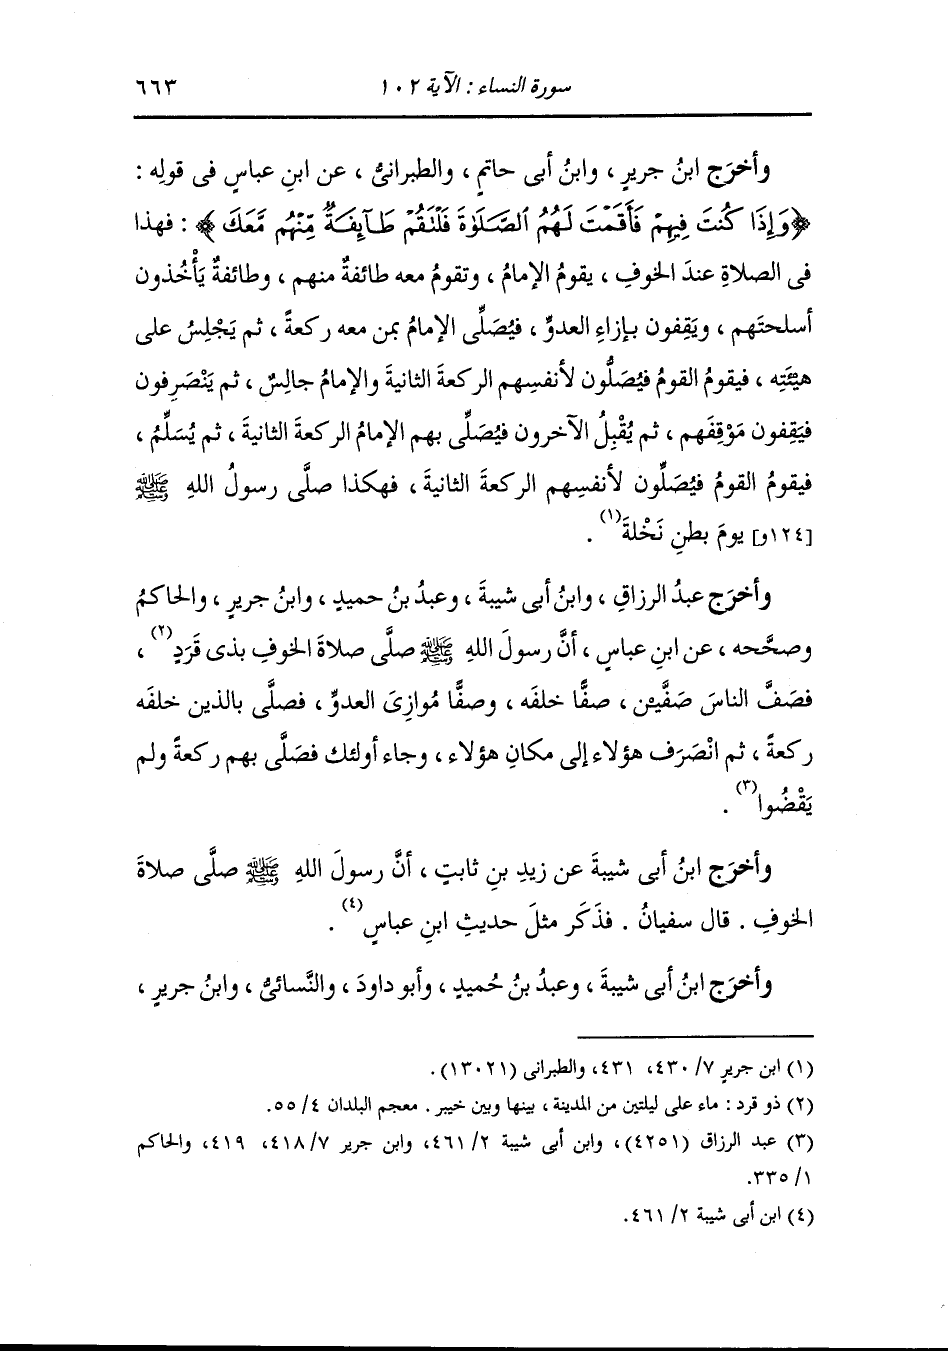 سورة النساء : الآية ١٠٢ ٦٦٣
وأخرَج ابنُ جريرٍ ، وابنُ أبى حاتمٍ ، والطبرانىُّ ، عن ابنِ عباسٍ فى قولِه :
﴿وَإِذَا كُنتَ فِيهِمْ فَأَقَمْتَ لَهُمُ ٱلصَّلَوٰةَ فَلْتَقُمْ طَآئِفَةٌ مِّنْهُم مَّعَكَ﴾ : فهذا
فى الصلاةِ عندَ الخوفِ ، يقومُ الإمامُ ، وتقومُ معه طائفةٌ منهم ، وطائفةٌ يَأْخُذون
أسلحتَهم ، ويَقِفون بإزاءِ العدوِّ ، فيُصَلِّى الإمامُ بمن معه ركعةً ، ثم يَجْلِسُ على
هيْئَتِه ، فيقومُ القومُ فيُصَلُّون لأنفسِهم الركعةَ الثانيةَ والإمامُ جالسٌ ، ثم يَنْصَرِفون
فيَقِفون مَوْقِفَهم ، ثم يُقْبِلُ الآخرون فيُصَلِّى بهم الإمامُ الركعةَ الثانيةَ ، ثم يُسَلِّمُ ،
فيقومُ القومُ فيُصَلِّون لأنفسِهم الركعةَ الثانيةَ ، فهكذا صلَّى رسولُ اللهِ ﷺ
[١٢٤و] يومَ بطنِ نَخْلةَ(١) .
وأخرَج عبدُ الرزاقِ ، وابنُ أبى شيبةَ ، وعبدُ بنُ حميدٍ ، وابنُ جريرٍ ، والحاكمُ
وصحَّحه ، عن ابنِ عباسٍ ، أنَّ رسولَ اللهِ ﷺ صلَّى صلاةَ الخوفِ بذى قَرَدٍ(٢) ،
فصَفَّ الناسَ صَفَّيْن ، صفًّا خلفَه ، وصفًّا مُوازِىَ العدوِّ ، فصلَّى بالذين خلفَه
ركعةً ، ثم انْصَرَف هؤلاء إلى مكانِ هؤلاء ، وجاء أولئك فصَلَّى بهم ركعةً ولم
يَقْضُوا(٣) .
وأخرَج ابنُ أبى شيبةَ عن زيدِ بنِ ثابتٍ ، أنَّ رسولَ اللهِ ﷺ صلَّى صلاةَ
الخوفِ . قال سفيانُ . فذَكَر مثلَ حديثِ ابنِ عباسٍ(٤) .
وأخرَج ابنُ أبى شيبةَ ، وعبدُ بنُ حُميدٍ ، وأبو داودَ ، والنَّسائىُّ ، وابنُ جريرٍ ،
(١) ابن جريرٍ ٧/ ٤٣٠، ٤٣١، والطبرانى (١٣٠٢١) .
(٢) ذو قرد : ماء على ليلتين من المدينة ، بينها وبين خيبر . معجم البلدان ٤/ ٥٥.
(٣) عبد الرزاق (٤٢٥١)، وابن أبى شيبة ٢/ ٤٦١، وابن جرير ٧/ ٤١٨، ٤١٩، والحاكم
١/ ٣٣٥.
(٤) ابن أبى شيبة ٢/ ٤٦١.